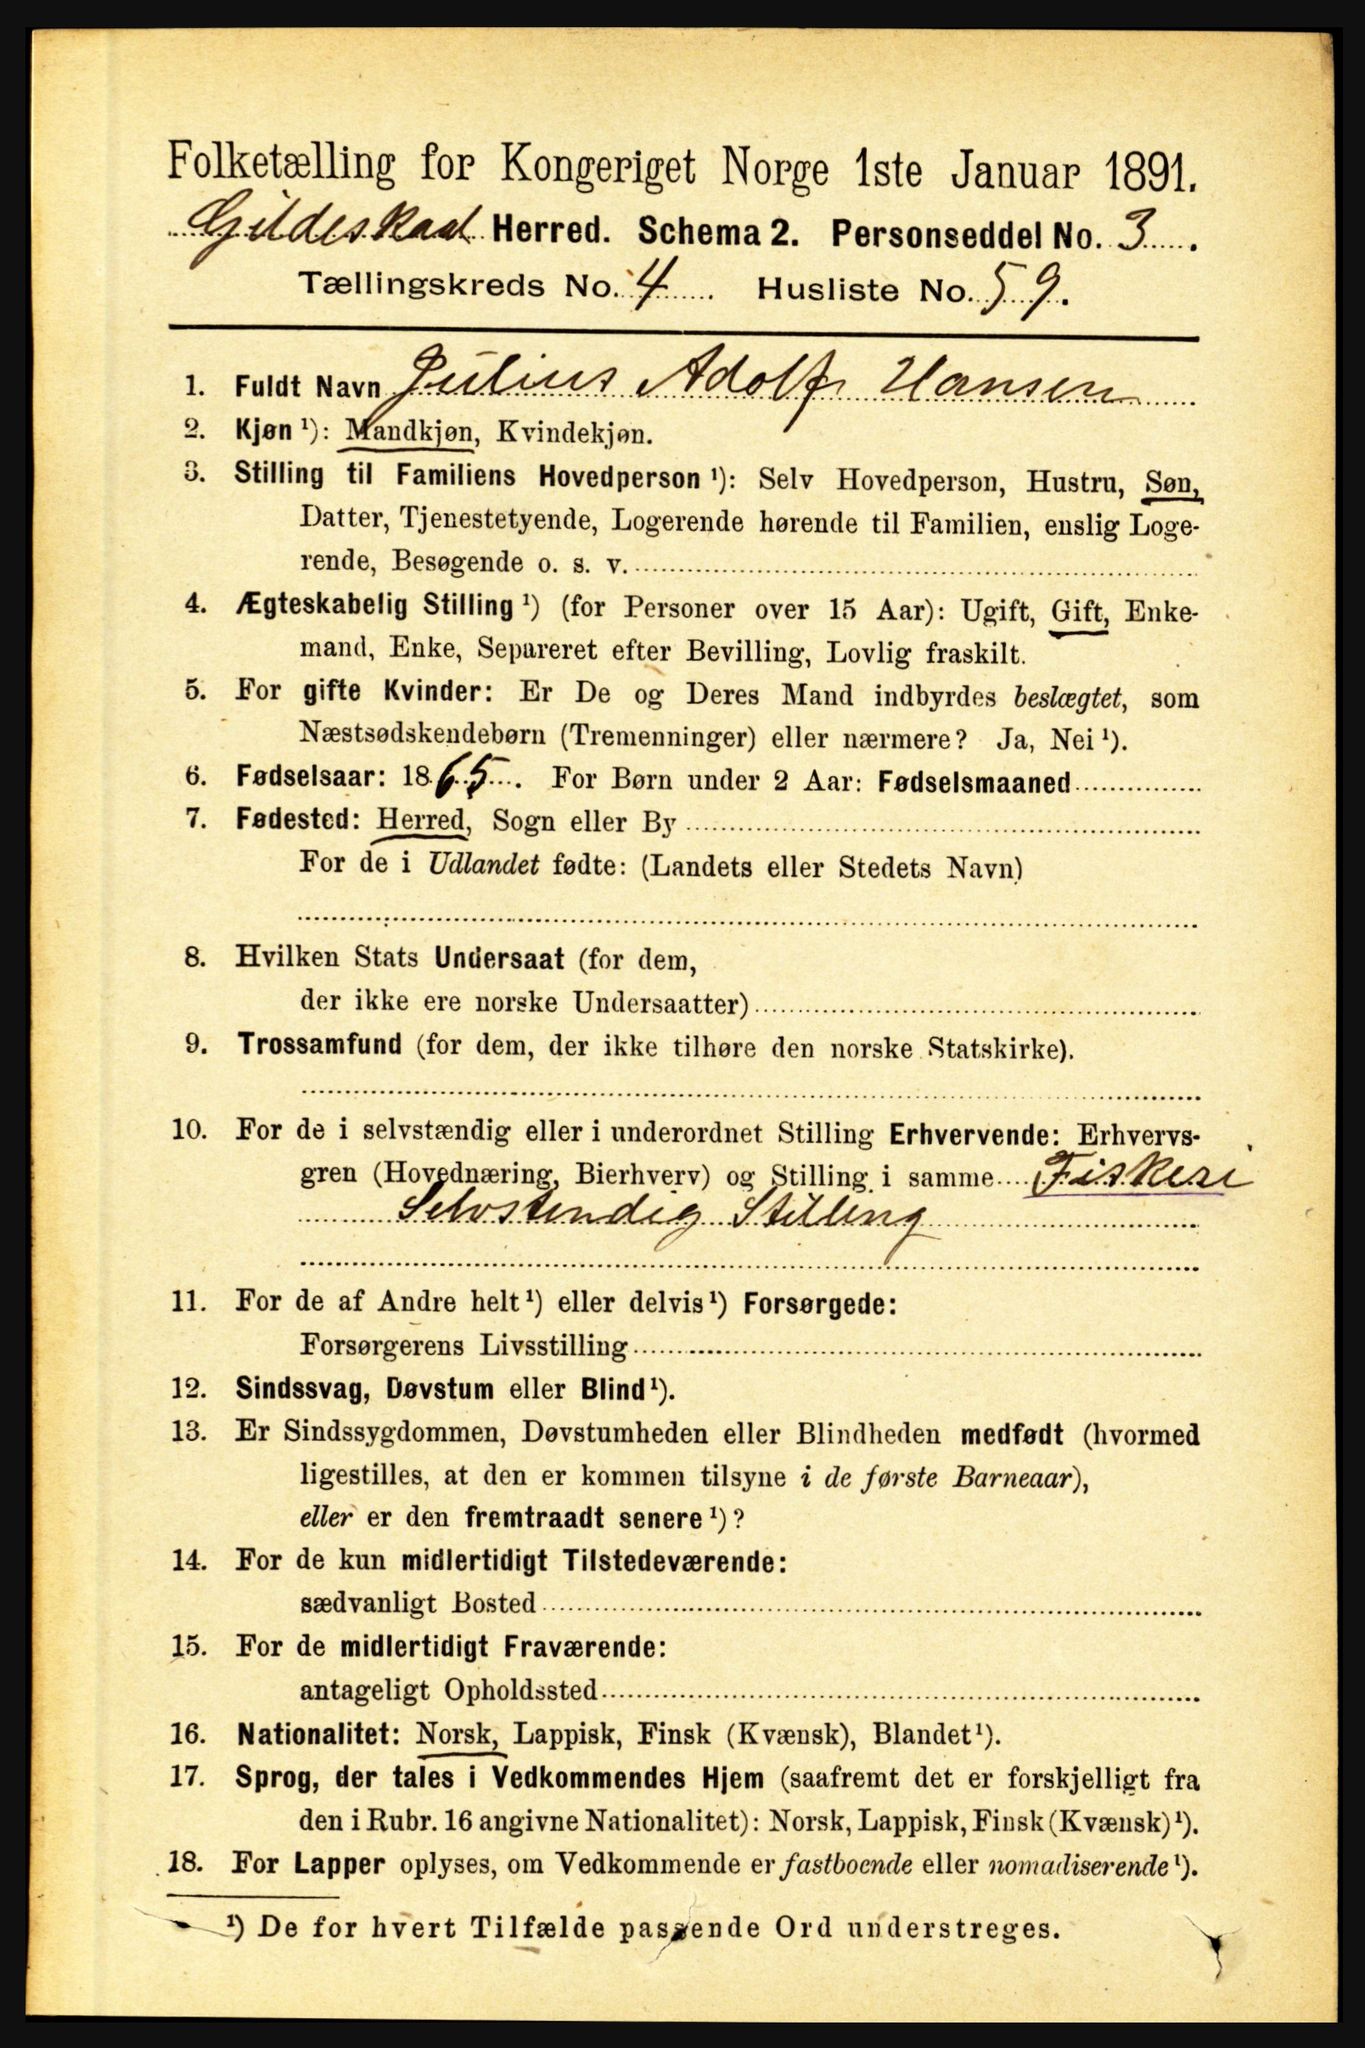 Folketælling for Kongeriget Norge 1ste Januar 1891.
Gildeskaal Herred. Schema 2. Personseddel No. 3.
Tællingskreds No. 4 Husliste No. 59.
1. Fuldt Navn Julius Adolf Hansen
2. Kjøn ¹): Mandkjøn, Kvindekjøn.
3. Stilling til Familiens Hovedperson ¹): Selv Hovedperson, Hustru, Søn,
Datter, Tjenestetyende, Logerende hørende til Familien, enslig Loge-
rende, Besøgende o. s. v.
4. Ægteskabelig Stilling ¹) (for Personer over 15 Aar): Ugift, Gift, Enke-
mand, Enke, Separeret efter Bevilling, Lovlig fraskilt.
5. For gifte Kvinder: Er De og Deres Mand indbyrdes beslægtet, som
Næstsødskendebørn (Tremenninger) eller nærmere? Ja, Nei ¹).
6. Fødselsaar: 1865. For Børn under 2 Aar: Fødselsmaaned
7. Fødested: Herred, Sogn eller By
For de i Udlandet fødte: (Landets eller Stedets Navn)
8. Hvilken Stats Undersaat (for dem,
der ikke ere norske Undersaatter)
9. Trossamfund (for dem, der ikke tilhøre den norske Statskirke).
10. For de i selvstændig eller i underordnet Stilling Erhvervende: Erhvervs-
gren (Hovednæring, Bierhverv) og Stilling i samme Fiskeri
Selvstendig Stilling
11. For de af Andre helt ¹) eller delvis ¹) Forsørgede:
Forsørgerens Livsstilling
12. Sindssvag, Døvstum eller Blind ¹).
13. Er Sindssygdommen, Døvstumheden eller Blindheden medfødt (hvormed
ligestilles, at den er kommen tilsyne i de første Barneaar),
eller er den fremtraadt senere ¹)?
14. For de kun midlertidigt Tilstedeværende:
sædvanligt Bosted
15. For de midlertidigt Fraværende:
antageligt Opholdssted
16. Nationalitet: Norsk, Lappisk, Finsk (Kvænsk), Blandet ¹).
17. Sprog, der tales i Vedkommendes Hjem (saafremt det er forskjelligt fra
den i Rubr. 16 angivne Nationalitet): Norsk, Lappisk, Finsk (Kvænsk) ¹).
18. For Lapper oplyses, om Vedkommende er fastboende eller nomadiserende ¹).
¹) De for hvert Tilfælde passende Ord understreges.